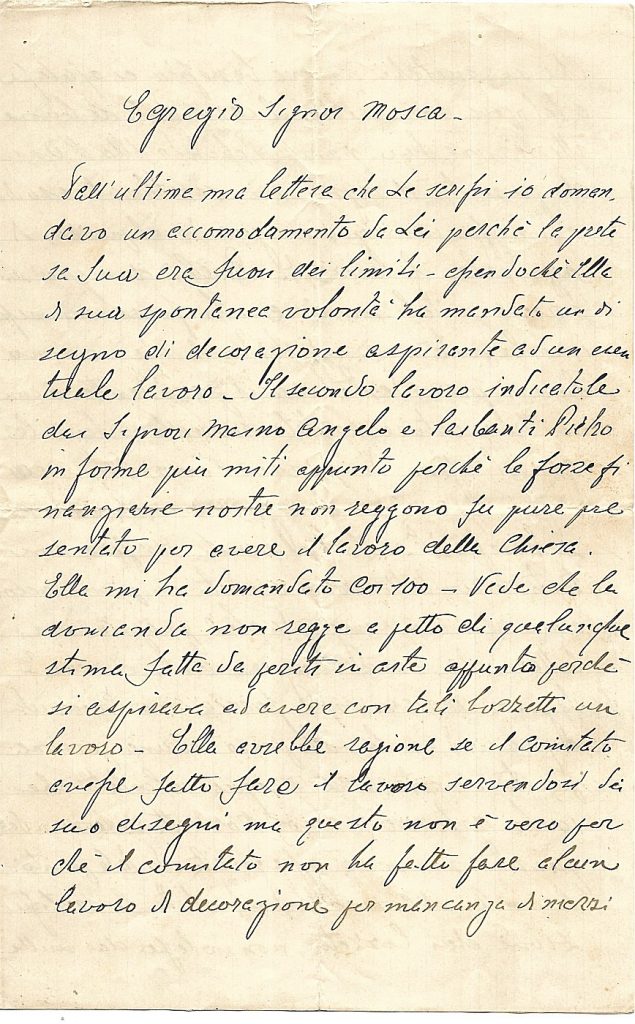 Egregio Signor Mosca -
Dall'ultima mia lettera che Le scrissi io doman,
davo un accomodamento da Lei perchè la prete
sa Sua era fuori dei limiti - essendochè Ella
di sua spontanea volontà ha mandato un di
segno di decorazione aspirante ad un even
tuale lavoro - Il secondo lavoro indicatole
dai Signori Angelo e Pietro
in forme più miti appunto perchè le forze fi
nanziarie nostre non reggono fu pure pre
sentato per avere il lavoro della Chiesa.
Ella mi ha domandato Cor 100 - Vede che la
domanda non regge a petto di qualunque
stima fatta da periti in arte appunto perchè
si aspirava ad avere con tali bozzetti un
lavoro - Ella avrebbe ragione se il Comitato
avesse fatto fare il lavoro servendosi dei
suo disegni ma questo non è vero per
chè il comitato non ha fatto fare alcun
lavoro di decorazione per mancanza di mezzi